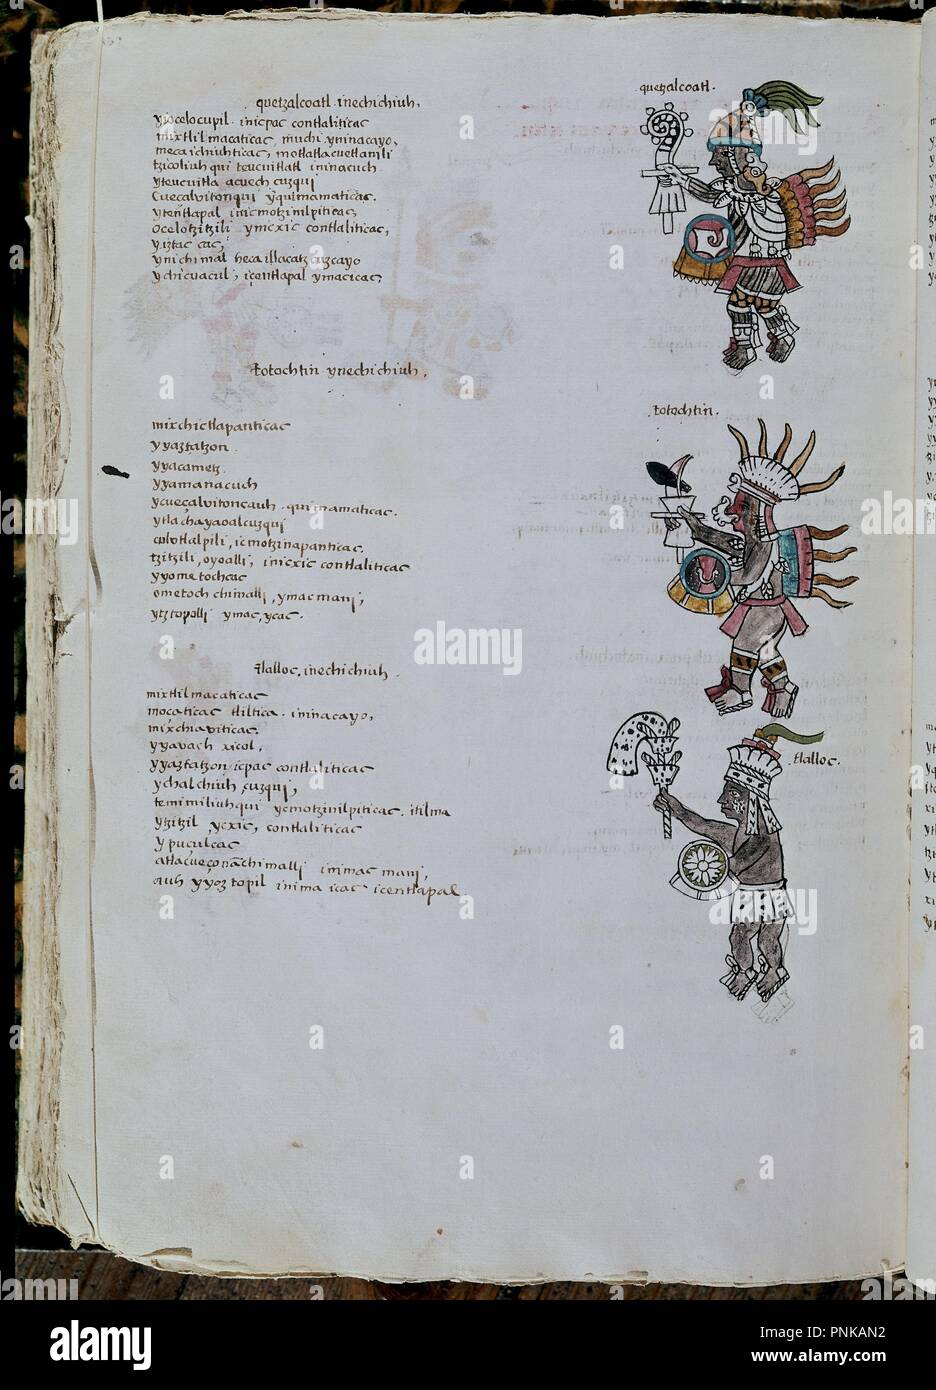 quetzalcoatl. inechichiuh,
yyocelocupil. inicpac contlaliticac
mixtlilmacaticac, muchi yninacayo,
mecaichiuhticac, motlatlacuetlanili
tzicoliuhqui teucuitlatl ininacuch
yteucuitla acuech cuzqui
Cueçalvitonqui yquimamaticac.
ytentlapal inicmotzinilpiticac,
ocelotzitzili ymexic contlaliticac,
yiztac cac,
ynichimal hecaillacatz cuzcayo
ychicuacul, icentlapal ymacicac,
quetzalcoatl.
totochtin ynechichiuh.
mixchictlapanticac
yyaztatzon
yyacametz
yyamanacuch
ycueçalvitoncauh. quimamaticac.
ytlachayaoalcuzqui
colotlalpili, icmotzinapanticac.
tzitzili, oyoalli, inicxic contlaliticac
yyometochcac
ometoch chimalli, ymac mani,
ytztopolli ymac, ycac.
totochtin.
tlalloc. inechichiuh.
mixtlilmacaticac
moçaticac tliltica. ininacayo,
mixchiaviticac.
yyavach xicol,
yyaztatzon icpac contlaliticac
ychalchiuh cuzqui,
temimiliuhqui ycmotzinilpiticac. itilma
ytzitzil, ycxic, contlaliticac
ypuculcac
atlacueçonãchimalli inimac mani,
auh yyoztopil inima icac icentlapal
tlalloc.
alamy
alamy
Image ID: PNKAN2
www.alamy.com